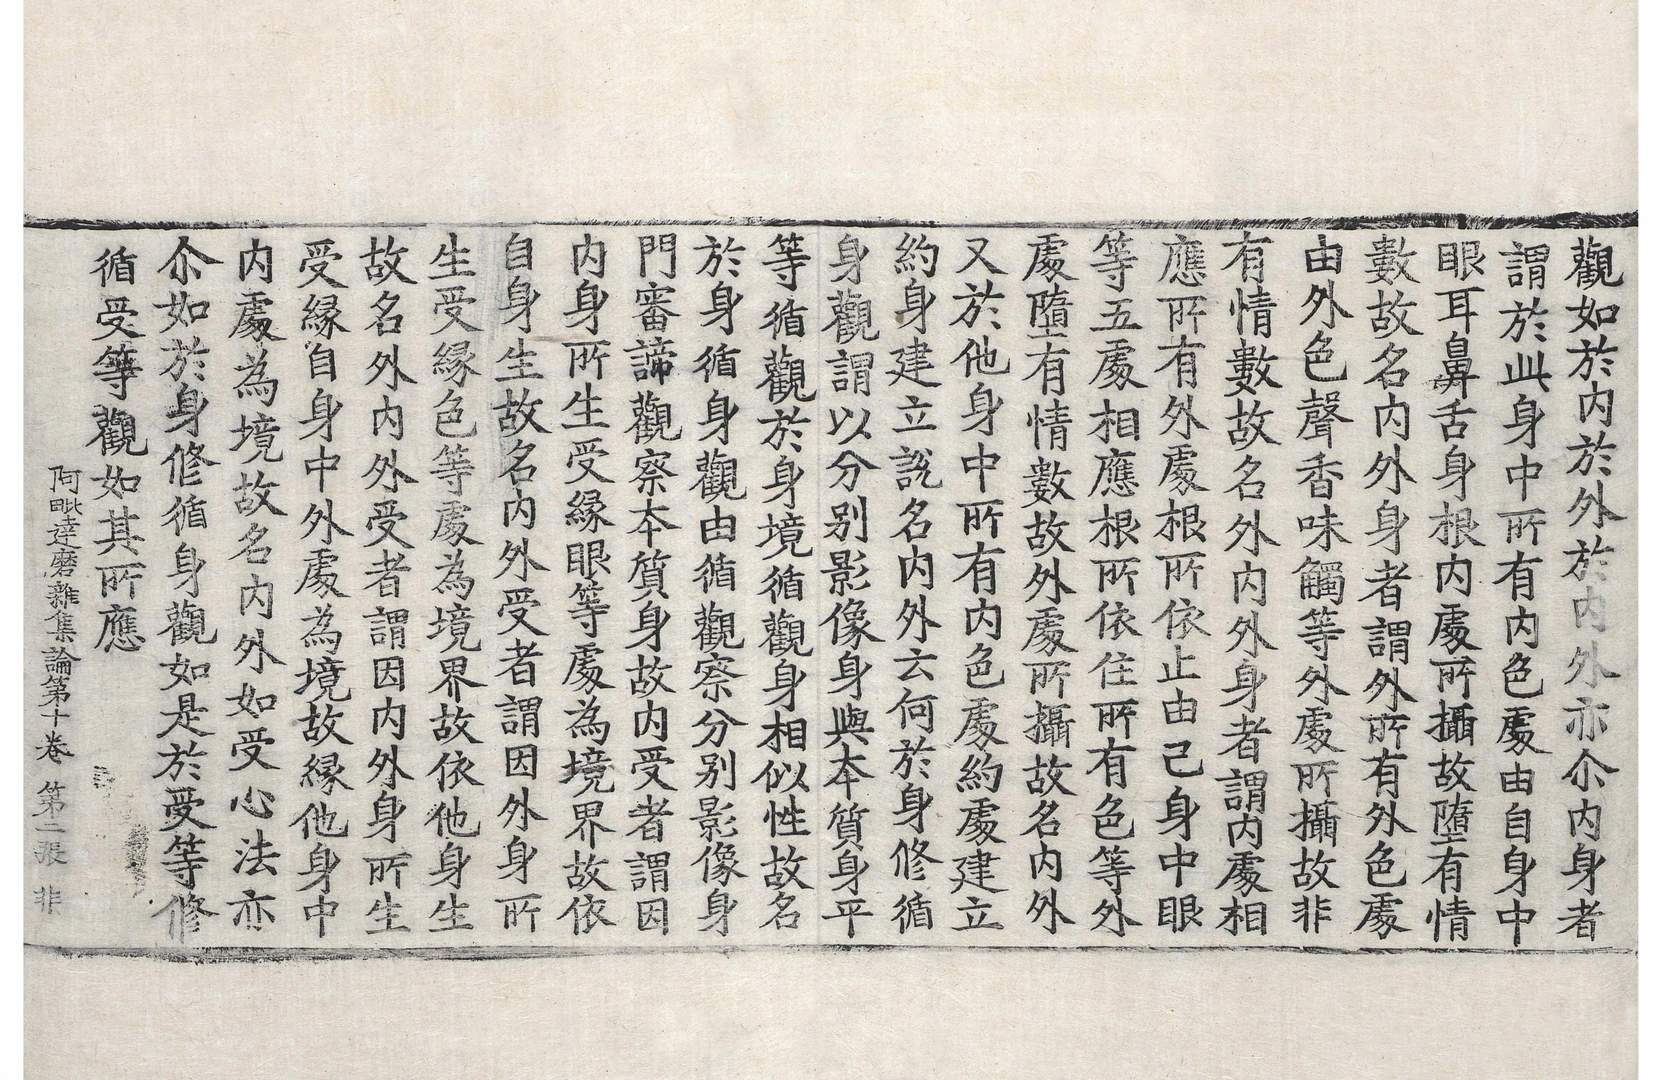 觀如於内於外於内外亦尒内身者
謂於此身中所有内色處由自身中
眼耳鼻舌身根内處所攝故墮有情
數故名内外身者謂外所有外色處
由外色聲香味觸等外處所攝故非
有情數故名外内外身者謂内處相
應所有外處根所依止由己身中眼
等五處相應根所依住所有色等外
處墮有情數故外處所攝故名内外
又於他身中所有内色處約處建立
約身建立說名内外云何於身修循
身觀謂以分别影像身與本質身平
等循觀於身境循觀身相似性故名
於身循身觀由循觀察分别影像身
門審諦觀察本質身故内受者謂因
内身所生受縁眼等處為境界故依
自身生故名内外受者謂因外身所
生受縁色等處為境界故依他身生
故名外内外受者謂因内外身所生
受縁自身中外處為境故縁他身中
内處為境故名内外如受心法亦
尒如於身修循身觀如是於受等修
循受等觀如其所應
阿毗達磨雜集論第十卷 第二張 非